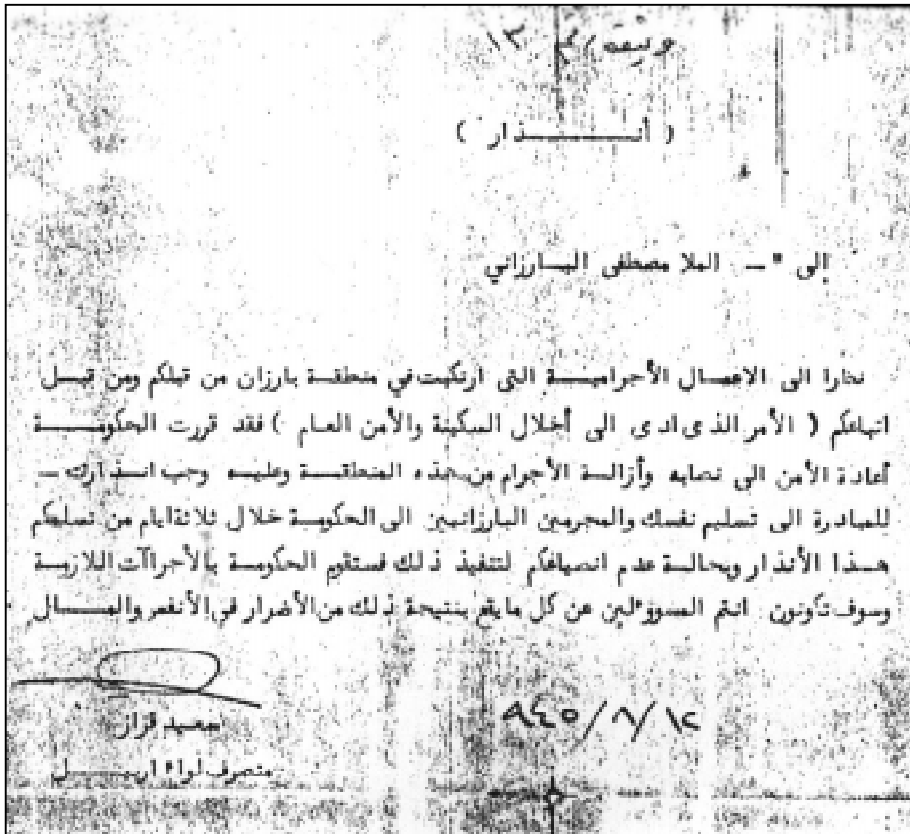 وثيقة / ١٣
( أنـــــذار )
الى *ـ الملا مصطفى البـــارزاني
نظرا الى الاعمـــال الأجراميـــة التى ارتكبت في منطقـــة بارزان من قبلكم ومن قبـــل
اتباعكم ( الأمر الذى ادى الى أخلال السكينة والأمن العـــام ) فقد قررت الحكومـــة
أعادة الأمن الى نصابه وأزالـــة الأجرام من هذه المنطقـــة وعليـــه وجب انـــذارك ـ
للمبادرة الى تسليم نفسك والمجرمين البارزانيين الى الحكومـــة خلال ثلاثةايام من تسلمكم
هـــذا الأنذار وبحالـــة عدم انصياعكم لتنفيذ ذلك فستقوم الحكومـــة بالأجراآت اللازمـــة
وسوف تكونون انتم المسوؤلين عن كل مايقع بنتيجة ذلك من الأضرار في الأنفس والمـــال
٩٤٥/٨/١٢
سعيد قزاز
متصرف لواء اربيـــل